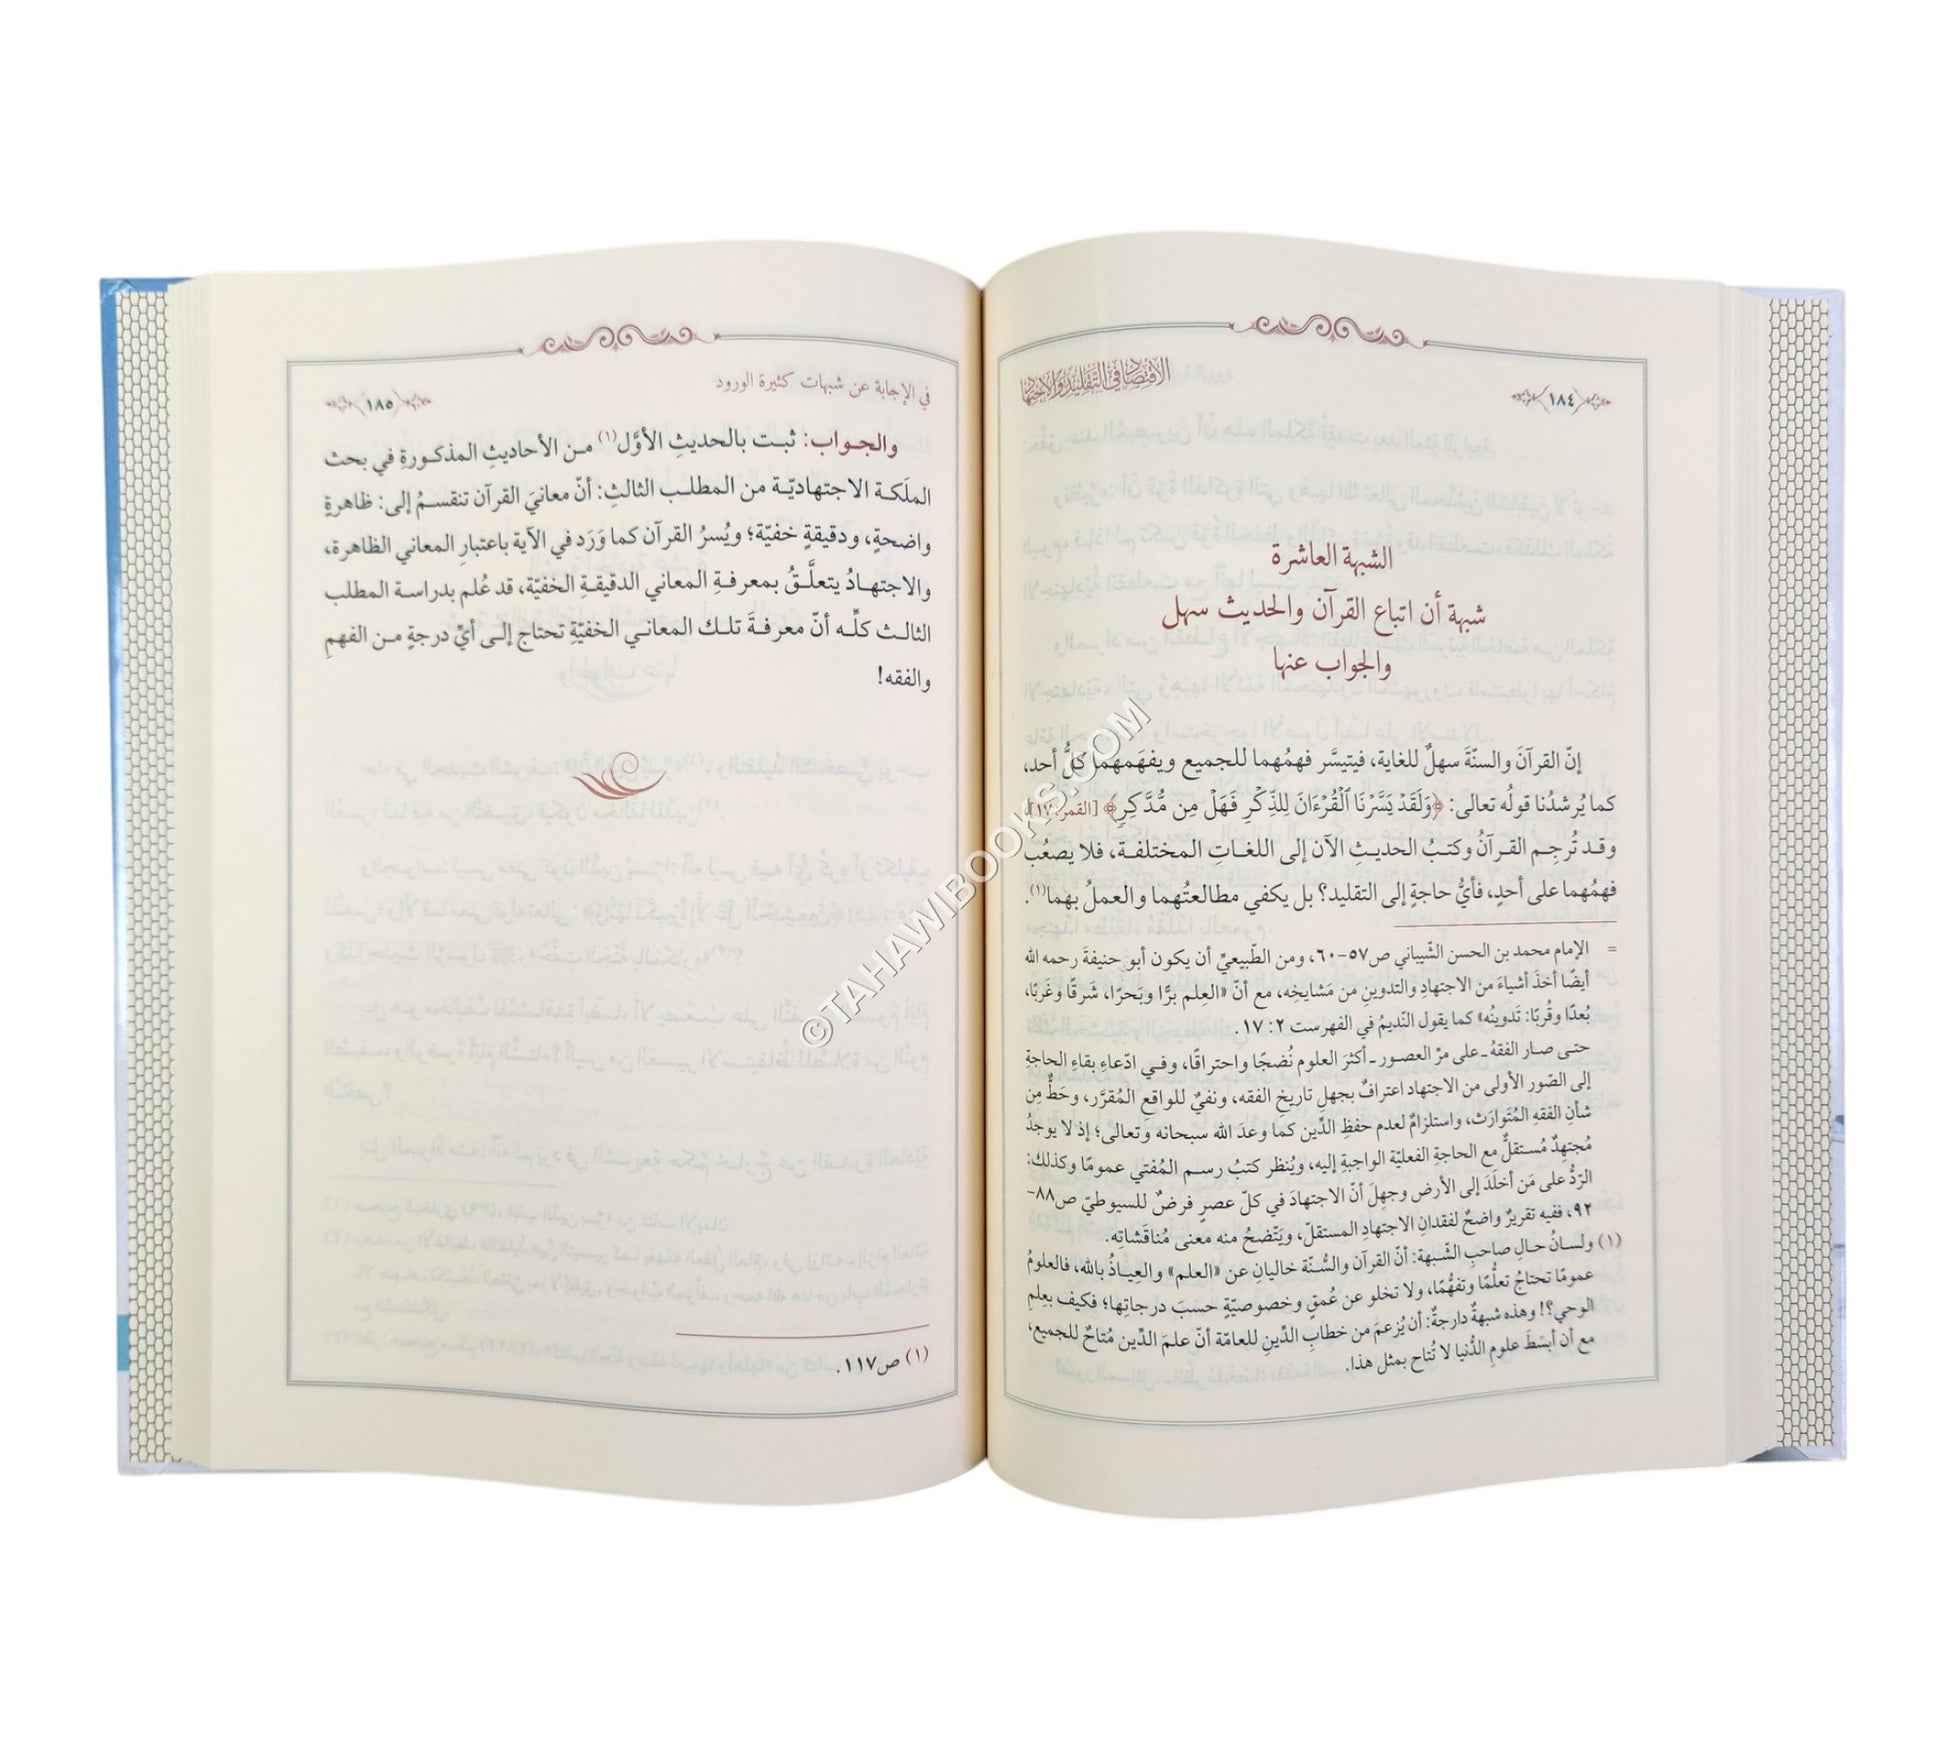 ﴿١٨٤﴾
الاقتصاد في التقليد والاجتهاد
الشبهة العاشرة
شبهة أن اتباع القرآن والحديث سهل
والجواب عنها
إنّ القرآنَ والسنّةَ سهلٌ للغاية، فيتيسَّر فهمُهما للجميع ويفهَمهما كلُّ أحد،
كما يُرشدُنا قولُه تعالى: ﴿وَلَقَدْ يَسَّرْنَا ٱلْقُرْءَانَ لِلذِّكْرِ فَهَلْ مِن مُّدَّكِرٍ﴾ [القمر: ١٧]،
وقد تُرجِم القرآنُ وكتبُ الحديثِ الآن إلى اللغاتِ المختلفة، فلا يصعُب
فهمُهما على أحدٍ، فأيُّ حاجةٍ إلى التقليد؟ بل يكفي مطالعتُهما والعملُ بهما(١).
= الإمام محمد بن الحسن الشّيباني ص٥٧-٦٠، ومن الطّبيعيِّ أن يكون أبو حنيفةَ رحمه الله
أيضًا أخذَ أشياءَ من الاجتهادِ والتدوينِ من مَشايخِه، مع أنّ «العِلم برًّا وبَحرًا، شَرقًا وغَربًا،
بُعدًا وقُربًا: تَدوينُه» كما يقول النّديمُ في الفهرست ٢: ١٧.
حتى صار الفقهُ ـ على مرِّ العصور ـ أكثرَ العلوم نُضجًا واحتراقًا، وفي ادّعاءِ بقاءِ الحاجةِ
إلى الصّور الأولى من الاجتهاد اعترافٌ بجهلِ تاريخِ الفقه، ونفيٌ للواقعِ المُقرَّر، وحَطٌّ مِن
شأنِ الفقهِ المُتَوارَث، واستلزامٌ لعدم حفظِ الدِّين كما وعدَ الله سبحانه وتعالى؛ إذ لا يوجدُ
مُجتهِدٌ مُستقلٌّ مع الحاجةِ الفعليّة الواجبةِ إليه، ويُنظر كتبُ رسم المُفتي عمومًا وكذلك:
الرّدُّ على مَن أخلَدَ إلى الأرض وجهِلَ أنّ الاجتهادَ في كلّ عصرٍ فرضٌ للسيوطيّ ص٨٨-
٩٢، ففيه تقريرٌ واضحٌ لفقدانِ الاجتهادِ المستقلّ، ويَتّضحُ منه معنى مُناقَشاتِه.
(١) ولسانُ حالِ صاحبِ الشّبهة: أنّ القرآن والسُّنّة خاليانِ عن «العلم» والعِياذُ بالله، فالعلومُ
عمومًا تحتاجُ تعلُّمًا وتفهُّمًا، ولا تخلو عن عُمقٍ وخصوصيّةٍ حسبَ درجاتِها؛ فكيف بعِلمِ
الوحي؟! وهذه شبهةٌ دارجةٌ: أن يُزعمَ من خطابِ الدِّينِ للعامّة أنّ علمَ الدِّين مُتاحٌ للجميع،
مع أن أبسَطَ علومِ الدُّنيا لا تُتاح بمثل هذا.
في الإجابة عن شبهات كثيرة الورود
﴿١٨٥﴾
والجواب: ثبت بالحديثِ الأوَّل(١) من الأحاديثِ المذكورةِ في بحث
الملَكة الاجتهاديّة من المطلب الثالثِ: أنّ معانيَ القرآن تنقسمُ إلى: ظاهرةٍ
واضحةٍ، ودقيقةٍ خفيّة؛ ويُسرُ القرآن كما وَرَد في الآية باعتبارِ المعاني الظاهرة،
والاجتهادُ يتعلَّقُ بمعرفةِ المعاني الدقيقةِ الخفيّة، قد عُلم بدراسة المطلب
الثالث كلِّه أنّ معرفةَ تلك المعاني الخفيّةِ تحتاج إلى أيِّ درجةٍ من الفهمِ
والفقه!
(١) ص١١٧.
©TAHAWIBOOKS.COM